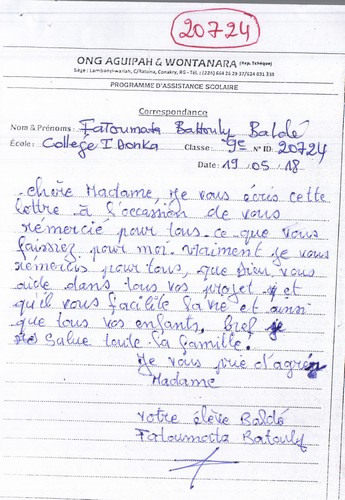 20724
ONG AGUIPAH & WONTANARA (Rep. Tchèque)
PROGRAMME D'ASSISTANCE SCOLAIRE
Correspondance
Nom & Prénoms : Fatoumata Battouly Baldé
École : College I Donka Classe : 9e N° ID : 20724
Date : 19/05/18
chère Madame, je vous écris cette
lettre à l'occasion de vous
remercié pour tous ce que vous
faissiez pour moi. Vraiment je vous
remercies pour tous, que Dieu vous
aide dans tous vos projet et
qu'il vous facilite la vie et ainsi
que tous vos enfants. bref je
salue toute la famille!
Je vous prie d'agréer
Madame
votre élève Baldé
Fatoumata Batouly